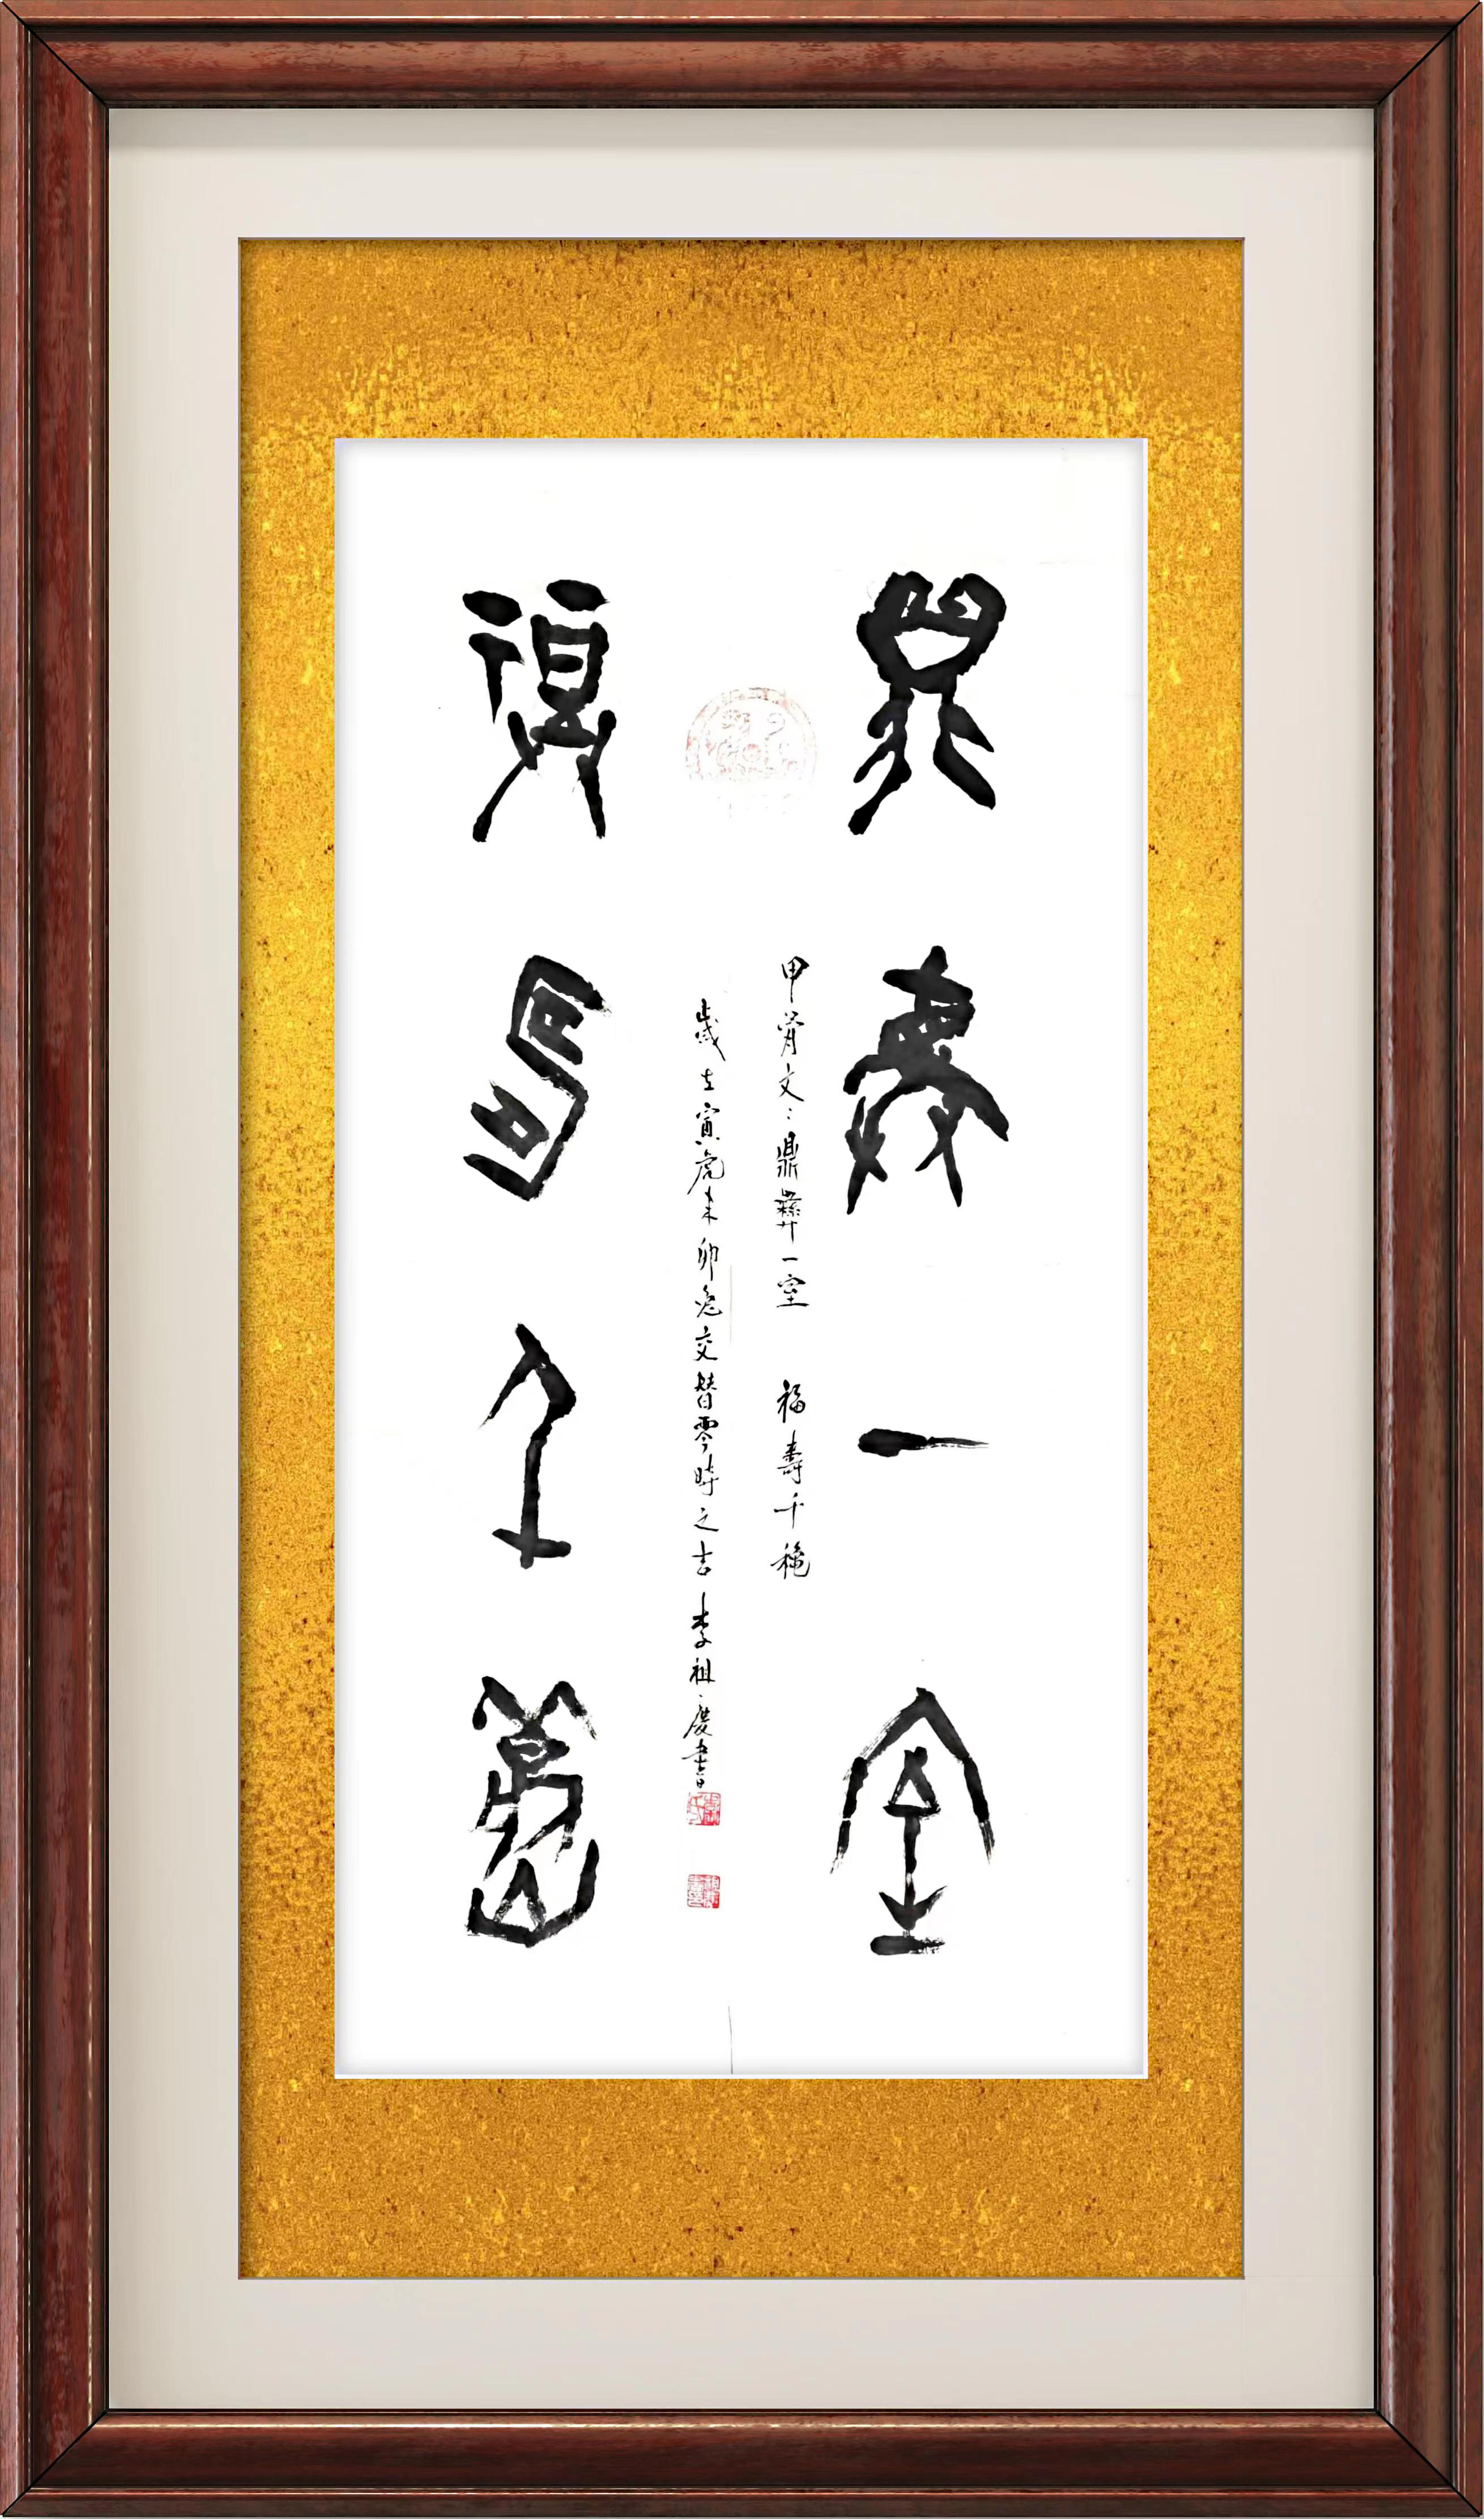 鼎彝一室
甲骨文：鼎彝一室 福壽千穐
歲在寅虎末卯兔交替零時之吉 李祖慶書
福壽千穐